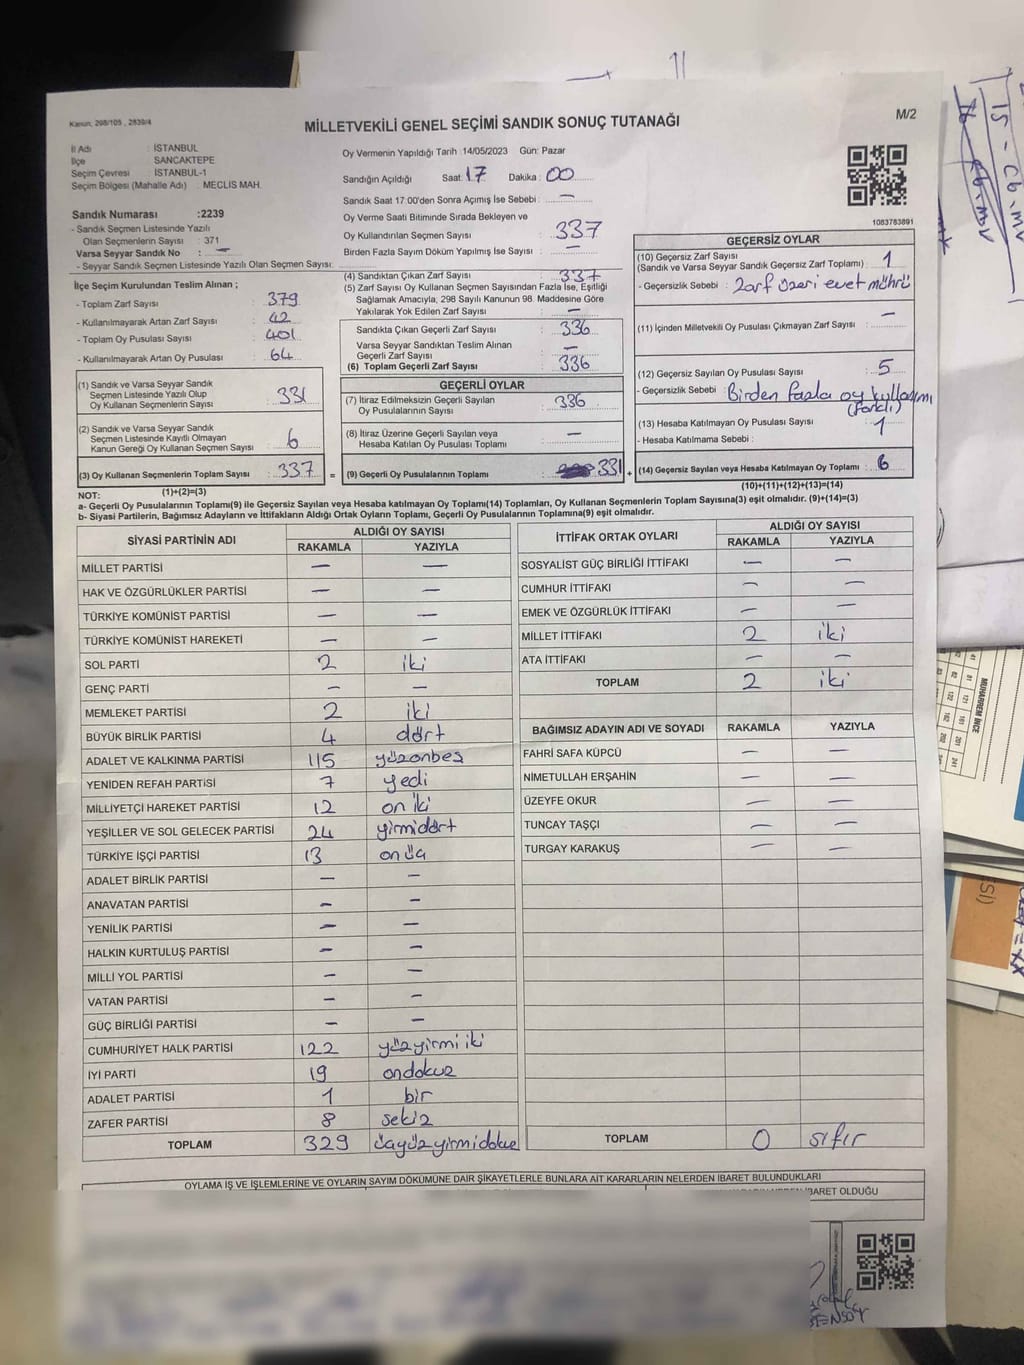 Kanun, 298/105 , 2839/4
M/2
MİLLETVEKİLİ GENEL SEÇİMİ SANDIK SONUÇ TUTANAĞI
İl Adı : İSTANBUL
İlçe SANCAKTEPE
Seçim Çevresi : İSTANBUL-1
Seçim Bölgesi (Mahalle Adı) : MECLIS MAH.
Sandık Numarası :2239
- Sandık Seçmen Listesinde Yazılı
Olan Seçmenlerin Sayısı : 371
Varsa Seyyar Sandık No : —
- Seyyar Sandık Seçmen Listesinde Yazılı Olan Seçmen Sayısı:
Oy Vermenin Yapıldığı Tarih :14/05/2023 Gün: Pazar
Sandığın Açıldığı Saat: 17 Dakika : 00
Sandık Saat 17:00'den Sonra Açımış İse Sebebi : —
Oy Verme Saati Bitiminde Sırada Bekleyen ve
Oy Kullandırılan Seçmen Sayısı : 337
Birden Fazla Sayım Döküm Yapılmış İse Sayısı : —
1083783891
İlçe Seçim Kurulundan Teslim Alınan ;
- Toplam Zarf Sayısı : 379
- Kullanılmayarak Artan Zarf Sayısı : 42
- Toplam Oy Pusulası Sayısı : 401
- Kullanılmayarak Artan Oy Pusulası : 64
(1) Sandık ve Varsa Seyyar Sandık
Seçmen Listesinde Yazılı Olup
Oy Kullanan Seçmenlerin Sayısı : 331
(2) Sandık ve Varsa Seyyar Sandık
Seçmen Listesinde Kayıtlı Olmayan
Kanun Gereği Oy Kullanan Seçmen Sayısı : 6
(3) Oy Kullanan Seçmenlerin Toplam Sayısı : 337 =
(1)+(2)=(3)
(4) Sandıktan Çıkan Zarf Sayısı : 337
(5) Zarf Sayısı Oy Kullanan Seçmen Sayısından Fazla İse, Eşitliği
Sağlamak Amacıyla, 298 Sayılı Kanunun 98. Maddesine Göre
Yakılarak Yok Edilen Zarf Sayısı : —
Sandıkta Çıkan Geçerli Zarf Sayısı : 336
Varsa Seyyar Sandıktan Teslim Alınan
Geçerli Zarf Sayısı : —
(6) Toplam Geçerli Zarf Sayısı : 336
GEÇERLİ OYLAR
(7) İtiraz Edilmeksizin Geçerli Sayılan
Oy Pusulalarının Sayısı : 336
(8) İtiraz Üzerine Geçerli Sayılan veya
Hesaba Katılan Oy Pusulası Toplamı : —
(9) Geçerli Oy Pusulalarının Toplamı : 331 +
GEÇERSİZ OYLAR
(10) Geçersiz Zarf Sayısı : 1
(Sandık ve Varsa Seyyar Sandık Geçersiz Zarf Toplamı)
- Geçersizlik Sebebi : Zarf üzeri evet mührü
(11) İçinden Milletvekili Oy Pusulası Çıkmayan Zarf Sayısı : —
(12) Geçersiz Sayılan Oy Pusulası Sayısı : 5
- Geçersizlik Sebebi : Birden fazla oy kullanımı
(farklı)
(13) Hesaba Katılmayan Oy Pusulası Sayısı : 1
- Hesaba Katılmama Sebebi :
(14) Geçersiz Sayılan veya Hesaba Katılmayan Oy Toplamı : 6
(10)+(11)+(12)+(13)=(14)
NOT:
a- Geçerli Oy Pusulalarının Toplamı(9) ile Geçersiz Sayılan veya Hesaba katılmayan Oy Toplamı(14) Toplamları, Oy Kullanan Seçmenlerin Toplam Sayısına(3) eşit olmalıdır. (9)+(14)=(3)
b- Siyasi Partilerin, Bağımsız Adayların ve İttifakların Aldığı Ortak Oyların Toplamı, Geçerli Oy Pusulalarının Toplamına(9) eşit olmalıdır.
SİYASİ PARTİNİN ADI ALDIĞI OY SAYISI
RAKAMLA YAZIYLA
MİLLET PARTİSİ — —
HAK VE ÖZGÜRLÜKLER PARTİSİ — —
TÜRKİYE KOMÜNİST PARTİSİ — —
TÜRKİYE KOMÜNİST HAREKETİ — —
SOL PARTİ 2 iki
GENÇ PARTİ — —
MEMLEKET PARTİSİ 2 iki
BÜYÜK BİRLİK PARTİSİ 4 dört
ADALET VE KALKINMA PARTİSİ 115 yüzonbeş
YENİDEN REFAH PARTİSİ 7 yedi
MİLLİYETÇİ HAREKET PARTİSİ 12 on iki
YEŞİLLER VE SOL GELECEK PARTİSİ 24 yirmidört
TÜRKİYE İŞÇİ PARTİSİ 13 onüç
ADALET BİRLİK PARTİSİ — —
ANAVATAN PARTİSİ — —
YENİLİK PARTİSİ — —
HALKIN KURTULUŞ PARTİSİ — —
MİLLİ YOL PARTİSİ — —
VATAN PARTİSİ — —
GÜÇ BİRLİĞİ PARTİSİ — —
CUMHURİYET HALK PARTİSİ 122 yüzyirmi iki
İYİ PARTİ 19 ondokuz
ADALET PARTİSİ 1 bir
ZAFER PARTİSİ 8 sekiz
TOPLAM 329
İTTİFAK ORTAK OYLARI ALDIĞI OY SAYISI
RAKAMLA YAZIYLA
SOSYALİST GÜÇ BİRLİĞİ İTTİFAKI — —
CUMHUR İTTİFAKI — —
EMEK VE ÖZGÜRLÜK İTTİFAKI — —
MİLLET İTTİFAKI 2 iki
ATA İTTİFAKI — —
TOPLAM 2 iki
BAĞIMSIZ ADAYIN ADI VE SOYADI RAKAMLA YAZIYLA
FAHRİ SAFA KÜPCÜ — —
NİMETULLAH ERŞAHİN — —
ÜZEYFE OKUR — —
TUNCAY TAŞÇI — —
TURGAY KARAKUŞ — —
TOPLAM 0 sıfır
OYLAMA İŞ VE İŞLEMLERİNE VE OYLARIN SAYIM DÖKÜMÜNE DAİR ŞİKAYETLERLE BUNLARA AİT KARARLARIN NELERDEN İBARET BULUNDUKLARI
İBARET OLDUĞU
MUHARREM İNCE